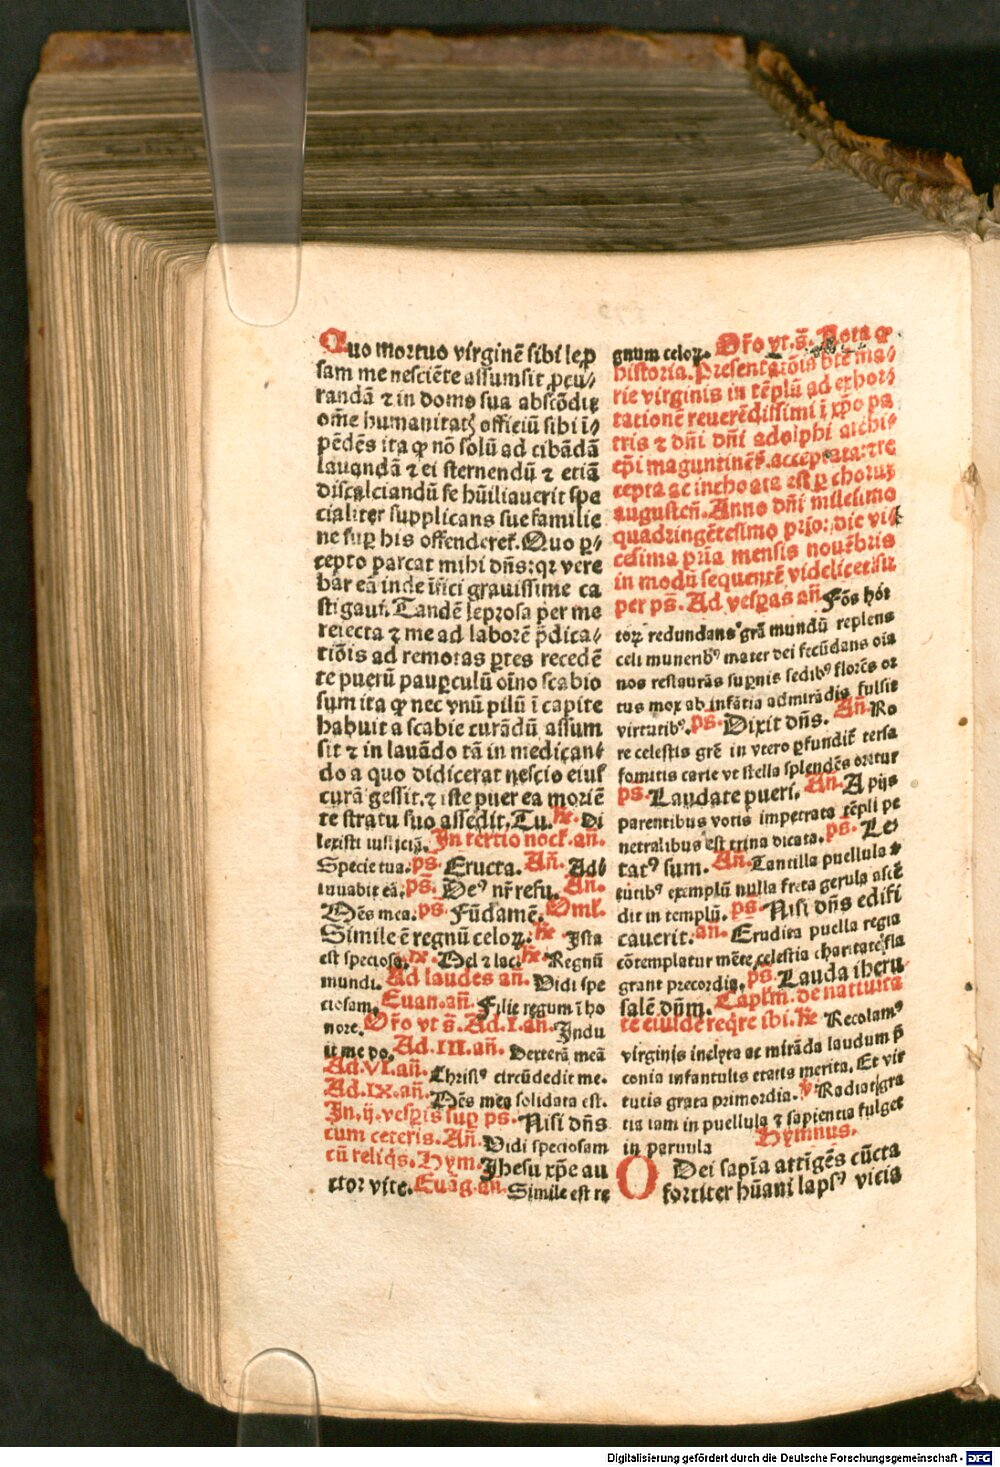 Quo mortuo virginē sibi lep
sam me nesciēte assumsit ꝓcu/
randā ⁊ in domo sua abscōdit
om̄e humanitatꝭ officiū sibi ī
pēdēs ita ꝙ nō solū ad cibādā
lauandā ⁊ ei sternendū ⁊ etiā
discalciandū se hūiliauerit spe
cialiter supplicans sue familie
ne suꝑ his offenderet᷑. Quo ꝑ/
cepto parcat mihi dn̄s: qꝛ vere
bar eā inde
grauissime ca
stigaui. Tandē leprosa per me
reiecta ⁊ me ad laborē p̄dica/
tiōis ad remotas ꝑtes recedē
te puerū pauꝑculū oīno scabio
sum ita ꝙ nec vnū pilū ī capite
habuit a scabie curādū assum
sit ⁊ in lauādo tā in medican/
do a quo didicerat nescio eiuſ
curā gessit. ⁊ iste puer ea moriē
te stratu suo assedit. Tu. ℟. Di
lexisti iusticiā. In tertio noct᷑. an̄.
Specie tua. ps̄. Eructa. An̄. Adi
iuuabit eā. ps̄. De⁹ nr̄ refu. An̄.
Oēs mea. ps̄. Fūdamē. Omł.
Simile ē regnū celoꝝ. ℟. Ista
est speciosa. ℟. Mel ⁊ lac. ℟. Regnū
mundi. Ad laudes an̄. Vidi spe
ciosam. Euan. an̄. Filie regum ī ho
nore. Or̄o vt s̄. Ad. I. an̄. Indu
it me do. Ad. III. an̄. Dexterā meā
Ad. VI. an̄. Christ⁹ circūdedit me.
Ad. IX. an̄. Oēs mea solidata est.
In. ij. vesꝑis suꝑ ps. Nisi dn̄s
cum ceteris. An̄. Vidi speciosam
cū reliq̄s. Hym. Jhesu xp̄e au
ctor vite. Euāg. an̄. Simile est re
gnum celoꝝ. Or̄o vt. s̄. Nota ꝙ
historia. Presentatōis btē ma/
rie virginis in tēplū ad exhor/
tationē reuerēdissimi ī xp̄o pa
tris ⁊ dn̄i dn̄i adolphi archi/
ep̄i maguntinēs̄. acceptata: ⁊ re
cepta ac inchoata est ꝑ chorum
augusteñ. Anno dn̄i milesimo
quadringētesimo
die vi/
cesima p̄ria mensis nouēbris
in modū sequentē videlicet: su
per ps̄. Ad vesꝑas an̄. Fōs hor
toꝝ redundans grā mundū replens
celi munerib⁹ mater dei fecūdans oīa
nos restaurās suꝑnis sedib⁹ florēs or
tus mox ab infātia admirādia fulsit
virtutib⁹. ps̄. Dixit dn̄s. An̄. Ro
re celestis grē in vtero ꝑfundit᷑ tersa
fomitis carie vt stella splendēs oritur
ps̄. Laudate pueri. An̄. A pijs
parentibus votis impetrata tēpli pe
netralibus est trina dicata. ps̄. Le
tat⁹ sum. An̄. Tantilla puellula v
tutib⁹ exemplū nulla freta gerula ascē
dit in templū. ps̄. Nisi dn̄s edifi
cauerit. an̄. Erudita puella regia
cōtemplatur mēte celestia charitate fla
grant precordia. ps̄. Lauda iheru
salē dn̄m. Caplm̄. de natiuita
te eiusdē reqͥre ibi. ℟. Recolam⁹
virginis inclyta ac mirāda laudum p̄
conia infantulis etatis merita. Et vir
tutis grata primordia. ℣. Radiat gra
tia iam in puellula ⁊ sapientia fulget
in paruula Hymnus.
O Dei sapīa attīgēs cūcta
fortiter hūani laps⁹ vicia
Digitalisierung gefördert durch die Deutsche Forschungsgemeinschaft - DFG